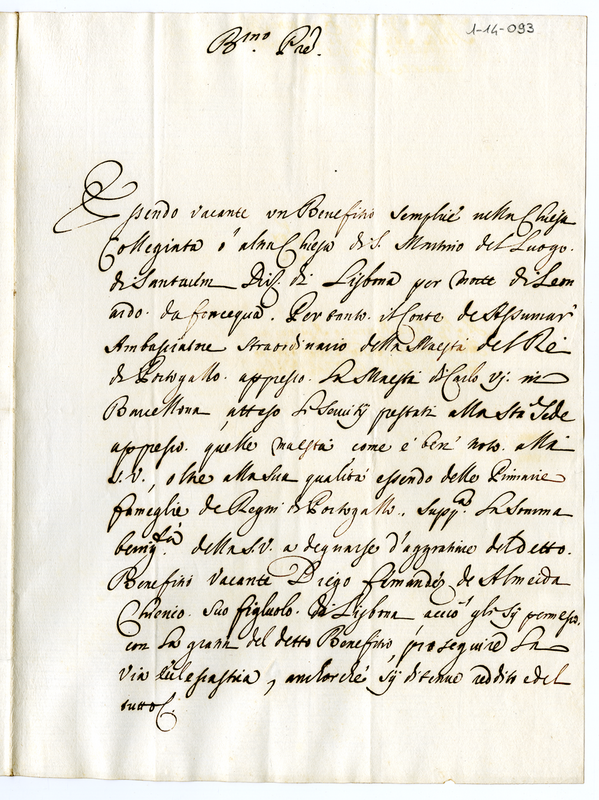 1-14-093
B.mo Pre.
Essendo vacante vn Benefitio Semplice nella Chiesa
Collegiata ò altra Chiesa di S. Martino del Luogo.
di Santarem Dis. di Lisbona per morte di Leon
ardo. da foncequa. Per tanto. il Conte de Assumar
Ambasciatore straordinario della Maestà del Rè
di Portogallo. appresso. La Maestà di Carlo vj. in
Barcellona, atteso Li Seruitij prestati alla Sta Sede
appresso. quelle maestà come è bene noto. alla
S.V., oltre alla sua qualità essendo delle Primarie
fameglie de Regni di Portogallo., Supp.ca La somma
benig.tà della S.V. a degnarse d'aggratiare del detto.
Benefitio Vacante Diego fernandez de Almeida
Chierico. suo figluolo. di Lisbona acciò gli sij permesso.
con La gratia del detto Benefitio, proseguire La
via Ecclesiastica, ancorche sij di tenue reddito e del
tutto